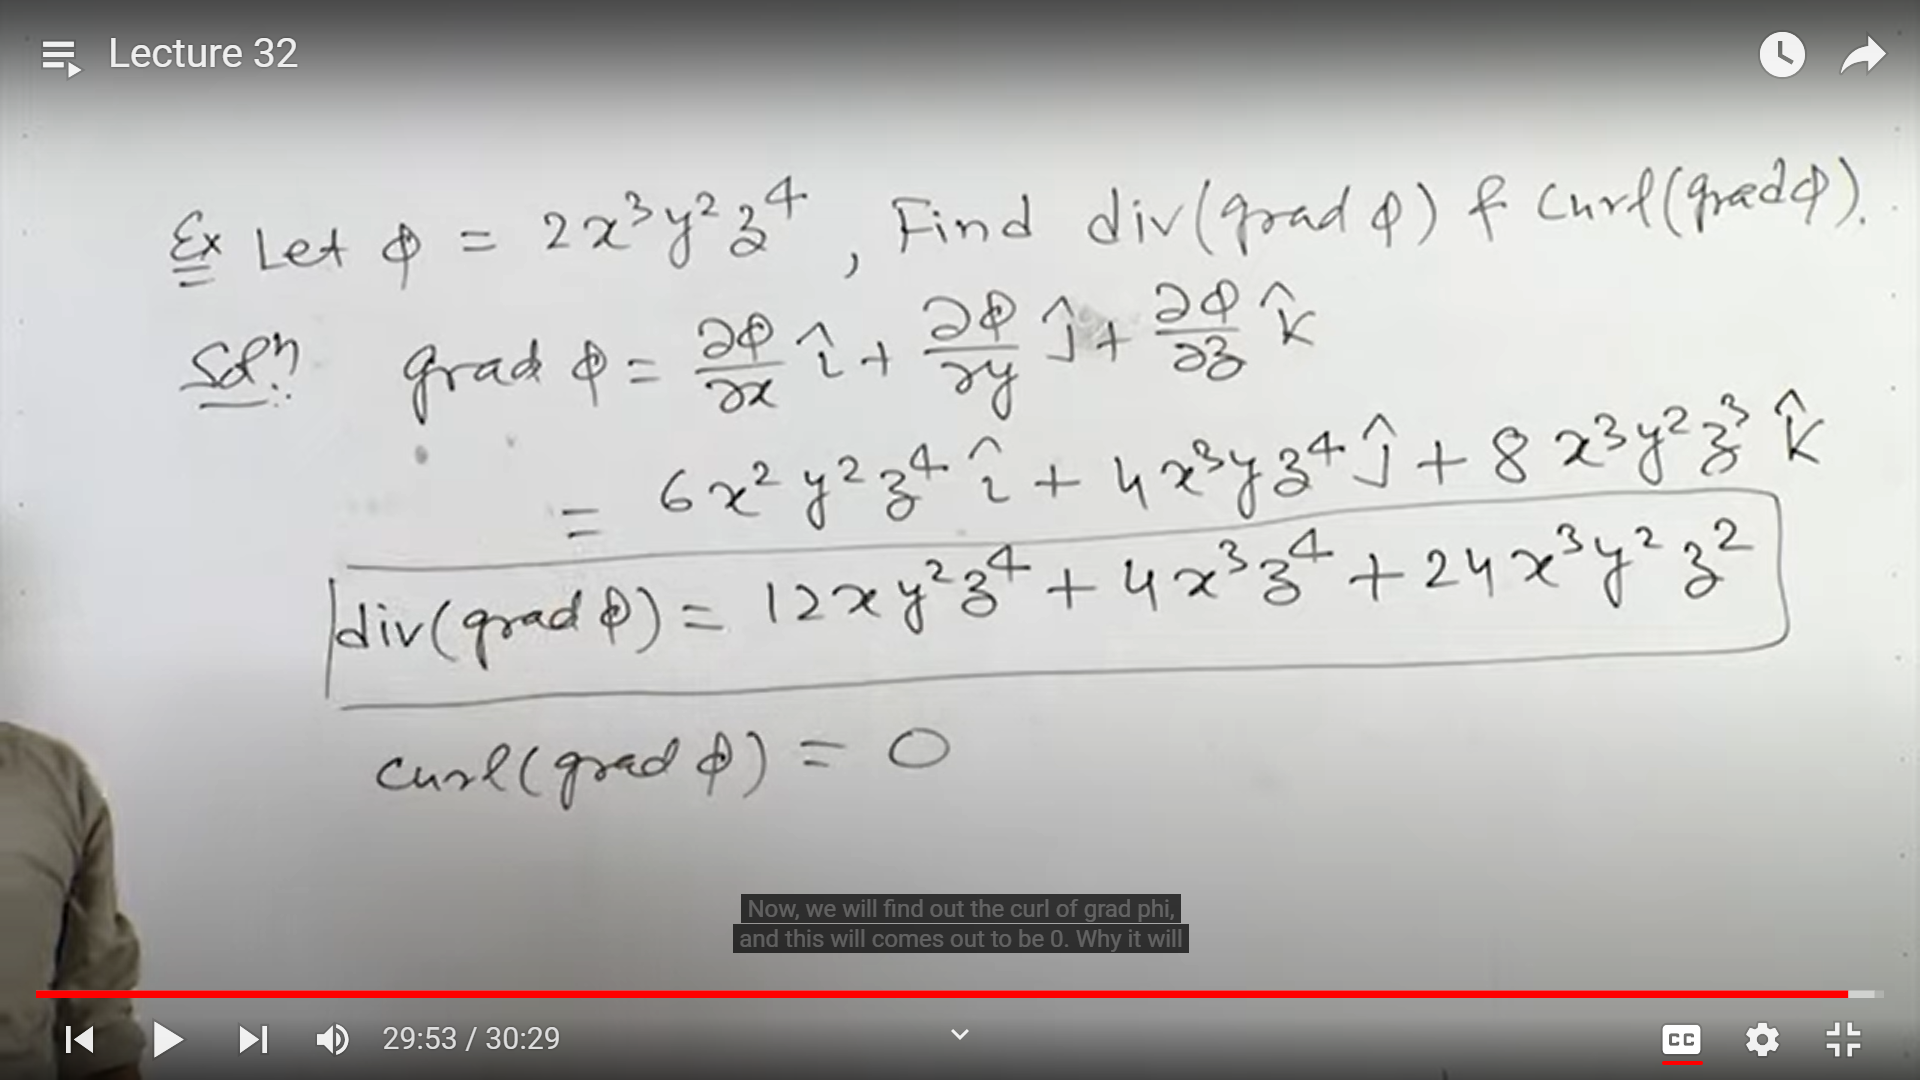 Lecture 32
Ex Let φ = 2x³y²z⁴, Find div(grad φ) & curl(grad φ).
Solⁿ: grad φ = ∂φ/∂x î + ∂φ/∂y ĵ + ∂φ/∂z k̂
= 6x²y²z⁴ î + 4x³yz⁴ ĵ + 8x³y²z³ k̂
div(grad φ) = 12xy²z⁴ + 4x³z⁴ + 24x³y²z²
curl(grad φ) = 0
Now, we will find out the curl of grad phi,
and this will comes out to be 0. Why it will
29:53 / 30:29
CC